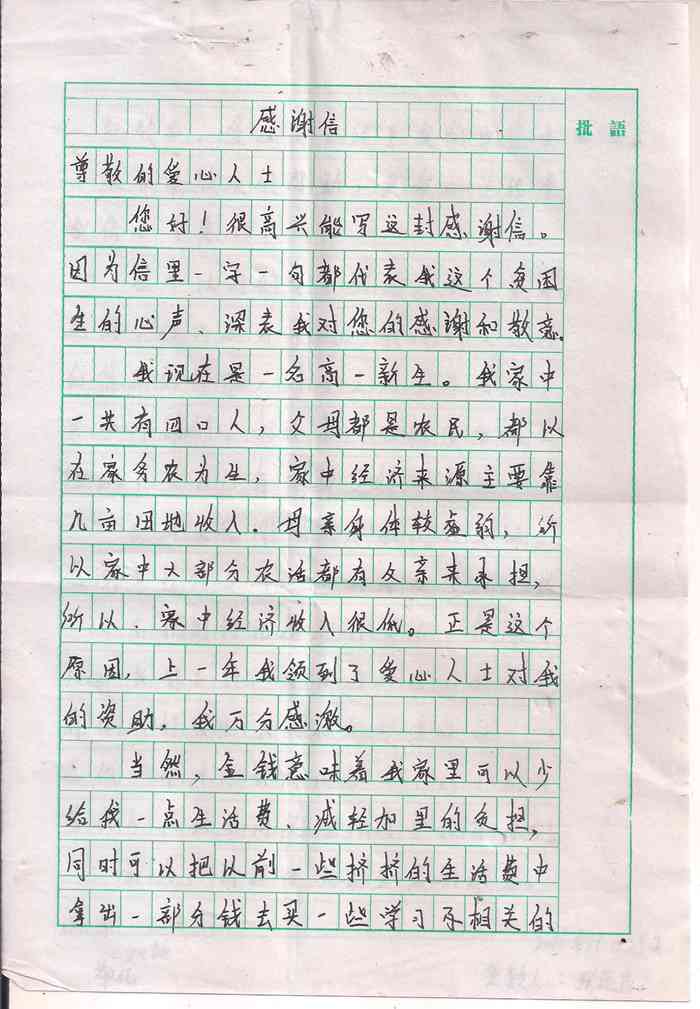 感谢信
批語
尊敬的爱心人士
您好！很高兴能写这封感谢信。
因为信里一字一句都代表我这个贫困
生的心声、深表我对您的感谢和敬意。
我现在是一名高一新生。我家中
一共有四口人，父母都是农民，都以
在家务农为生，家中经济来源主要靠
几亩田地收入．母亲身体较虚弱，所
以家中大部分农活都有父亲来承担，
所以．家中经济收入很低。正是这个
原因，上一年我领到了爱心人士对我
的资助，我万分感激。
当然，金钱意味着我家里可以少
给我一点生活费、减轻加里的负担，
同时可以把以前一些挤挤的生活费中
拿出一部分钱去买一些学习不相关的